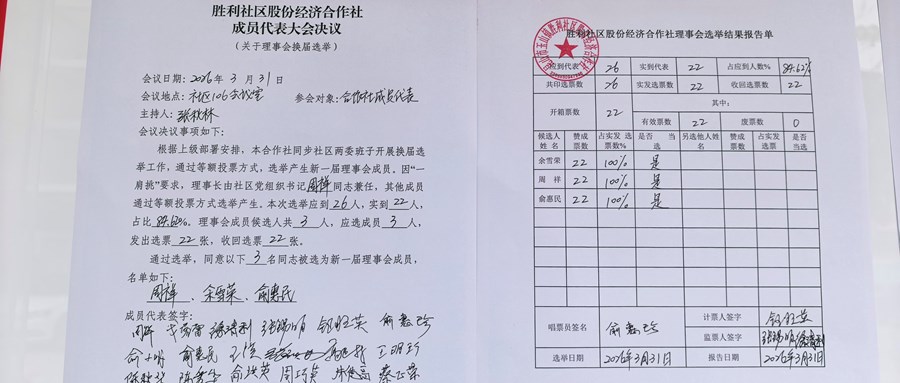 胜利社区股份经济合作社
成员代表大会决议
（关于理事会换届选举）
会议日期：2026年3月31日
会议地点：社区106会议室 参会对象：合作社成员代表
主持人：张秋林
会议决议事项如下：
根据上级部署安排，本合作社同步社区两委班子开展换届选
举工作，通过等额投票方式，选举产生新一届理事会成员。因“一
肩挑”要求，理事长由社区党组织书记周祥同志兼任，其他成员
通过等额投票方式选举产生。本次选举应到26人，实到22人，
占比84.62%。理事会成员候选人共3人，应选成员3人，
发出选票22张，收回选票22张。
通过选举，同意以下3名同志被选为新一届理事会成员，
名单如下：
周祥、余雪荣、俞惠民
成员代表签字：
周祥
俞惠民
胜利社区股份经济合作社理事会选举结果报告单
应到代表 26 实到代表 22 占应到人数% 84.62%
共印选票数 26 实发选票数 22 收回选票数 22
开箱票数 22 其中：
有效票数 22 废票数 0
候选人姓名 赞成票数 占实发选票数% 是否当选 另选他人姓名 赞成票数 占实发选票 是否当选
余雪荣 22 100% 是
周祥 22 100% 是
俞惠民 22 100% 是
唱票员签名 计票人签字
监票人签字
选举日期 2026年3月31日 报告日期 2026年3月31日